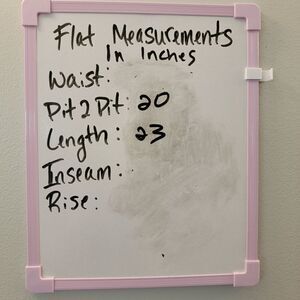 Flat Measurements
In Inches
Waist:
Pit 2 Pit: 20
Length: 23
Inseam:
Rise: